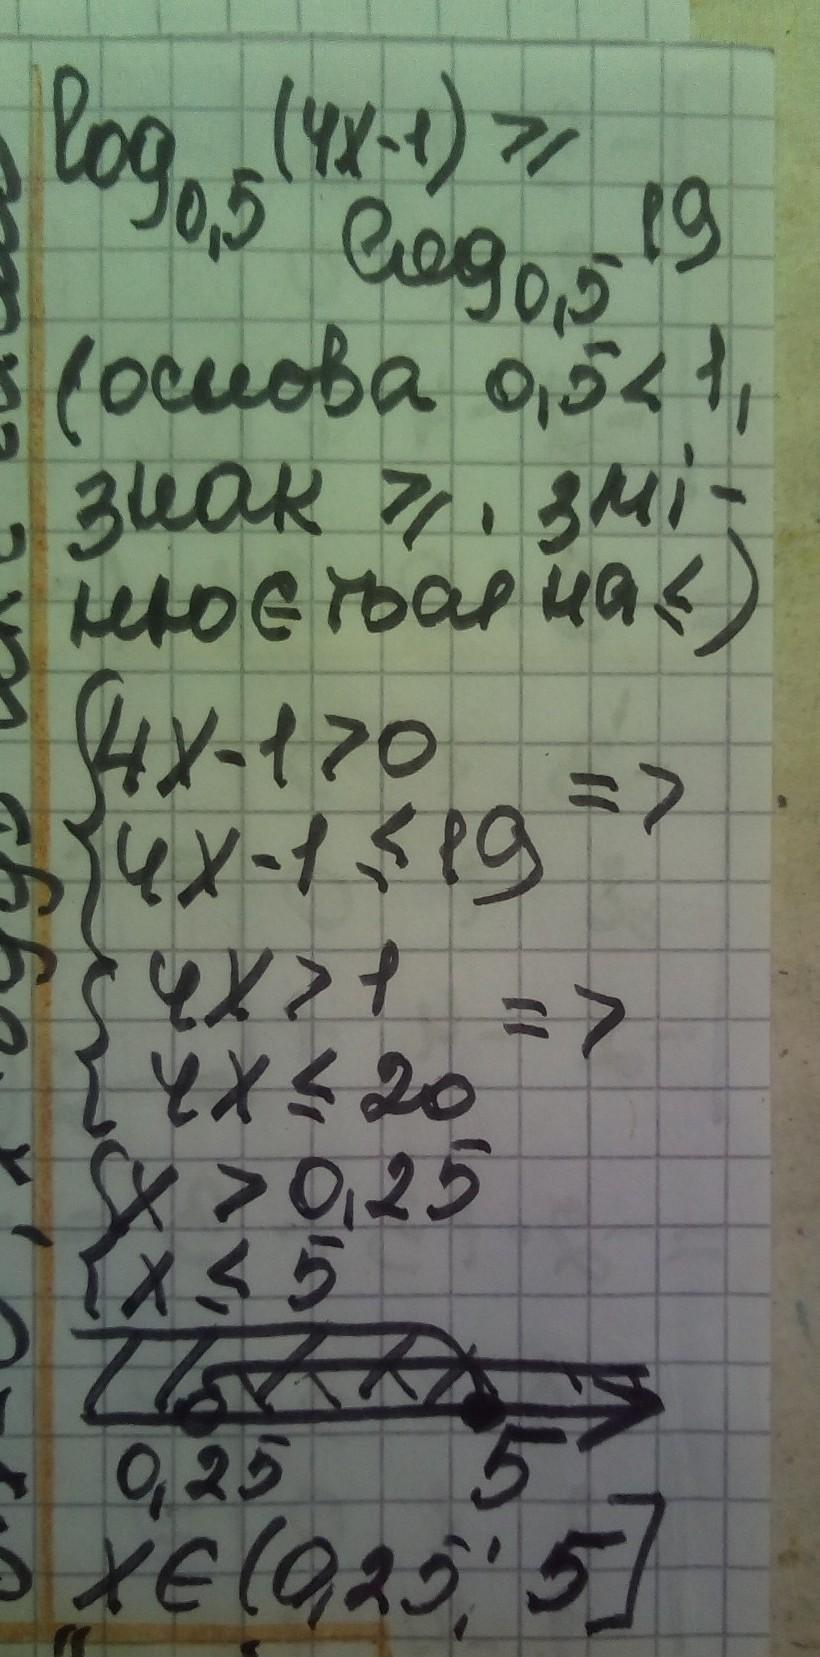 log₀,₅ (4x-1) ≥
log₀,₅ 19
(основа 0,5 < 1,
знак ≥, змі-
нюється на ≤)
{4x-1>0
{4x-1 ≤ 19 =>
{4x > 1
{4x ≤ 20 =>
{x > 0,25
{x ≤ 5
0,25 5
x∈(0,25; 5]